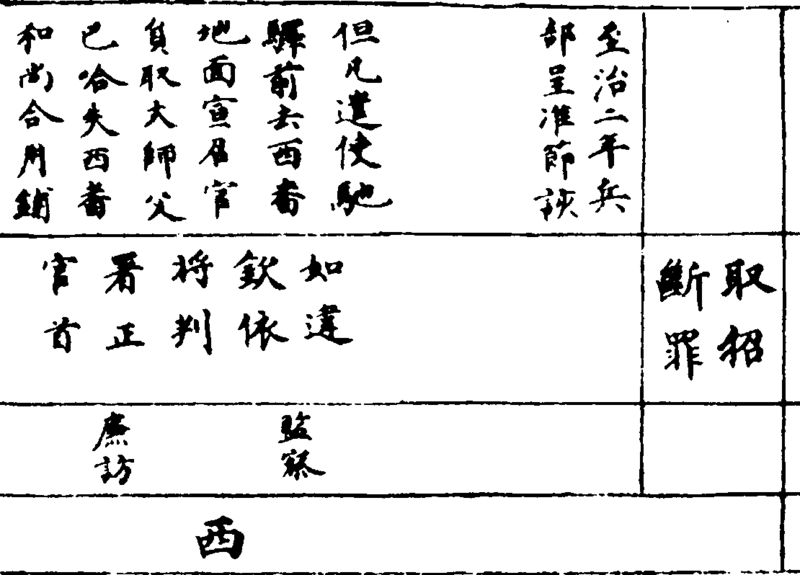 至治二年兵
部呈准節該
但凡遣使馳
驛前去西番
地面宣召官
員取大師父
巴哈失西番
和尚合用鋪
取招
斷罪
如違
欽依
將判
署正
官首
監察
廉訪
西